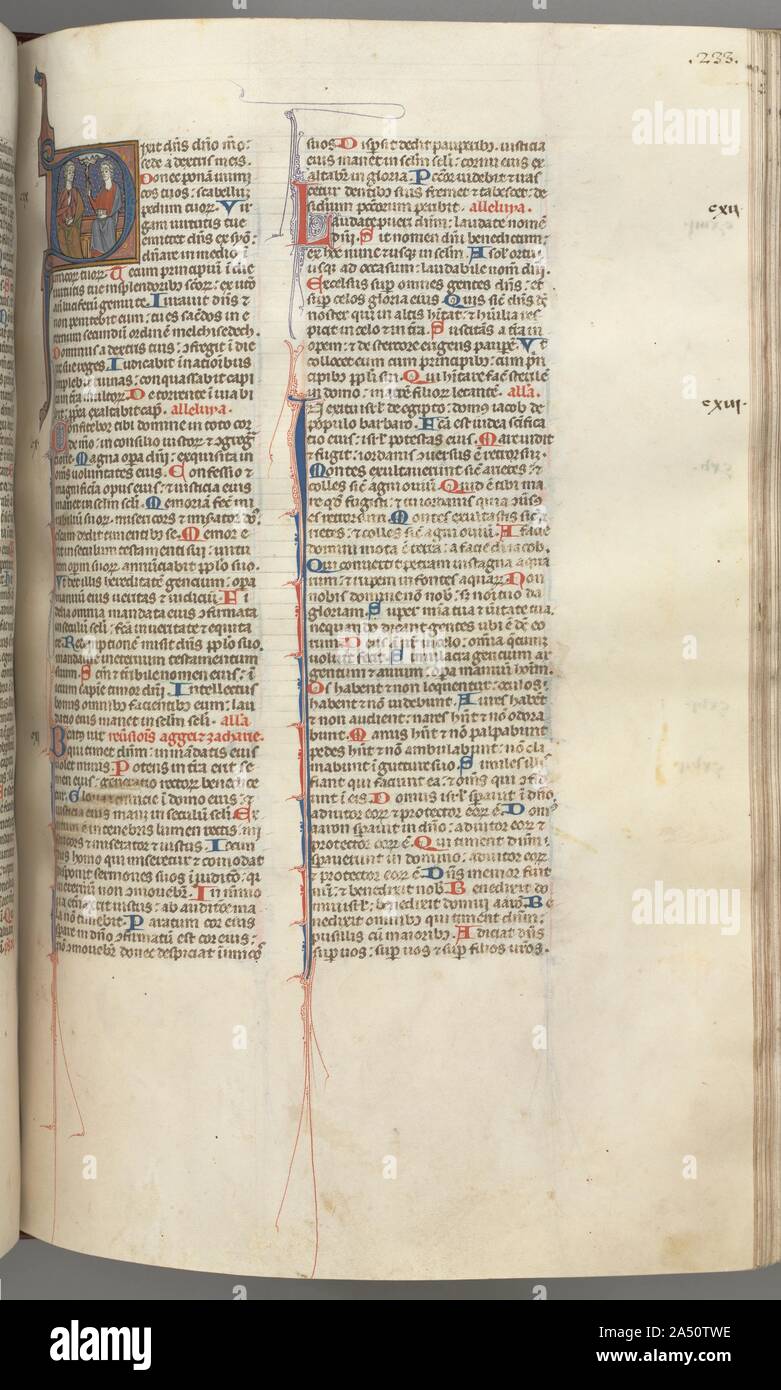 .233.
Dixit dñs dño mõ:
sede a dextris meis.
Donec ponã inimi
cos tuos: scabellum
pedum tuoꝝ. Vir
gam virtutis tue
emittet dñs ex syon:
dñare in medio i
nimicoꝝ tuoꝝ. Tecum principium i die
virtutis tue in splendoribꝰ scoꝝ: ex uto
añ luciferũ genui te. Iuravit dñs &
non penitebit eum: tu es sacdos in e
ternum secundũ ordinẽ melchisedech.
Dominus a dextris tuis: ɔfregit i die
ire sue reges. Iudicabit i nationibus
implebit ruinas: conquassabit capi
ta i tra multoꝝ. De torrente i via bi
bet: ppa exaltabit cap. alleluya.
Confitebor tibi domine in toto cor
de mo: in consilio iustoꝝ & ɔgreg
tione. Magna opa dñi: exquisita in
oms voluntates eius. Confessio &
magnificia opus eius: & iusticia eius
manet in selm seli. Memoriam fec mi
rabiliũ suoꝝ misericors & misator dñs
escam dedit timentibꝰ se. Memor e
rit in seculum testamenti sui: virtu
tem operum suoꝝ annũciabit pplo suo.
Vt det illis hereditatẽ gencium: opa
manuũ eius veritas & iudiciũ. Fi
delia omnia mandata eius ɔfirmata
in seculũ seli: fca in veritate & equita
te. Redẽptionẽ misit dñs pplo suo.
mandavit in eternum testamentum
suum. Scm & tribile nomen eius: i
icium sapie timor dñi. Intellectus
bonus omnibꝰ facientibꝰ eum: lau
datio eius manet in selm seli. alla
Beatꝰ vir reũsiois aggei & zacharie.
qui timet dñm: in mãdatis eius
volet nimis. Potens in tra erit se
men eius: generatio rectoꝝ benedice
tur. Gloria & divicie i domo eius: &
iusticia eius manet in seculũ seli. Ex
ortũ ẽ in tenebris lumen rectis: mi
sericors & miserator & iustus. Iocun
dus homo qui miseretur & comodat
disponit sermones suos i iudico: qi
in eternũ non ɔmovebr. In memo
ria etna erit iustus: ab auditõe ma
la nõ timebit. Paratum cor eius
spare in dño ɔfirmatũ est cor eius:
nõ ɔmovebr donec despiciat inimicos
suos. Dispsit dedit paupibꝰ. iusticia
eius manet in selm seli: cornu eius ex
altabr in gloria. Pccor videbit & iras
cetur dentibꝰ suis fremet & tabescet: de
siderium pccorum peribit. alleluya.
Laudate pueri dñm: laudate nomẽ
dñi. Sit nomen dñi benedictum:
ex hoc nunc & usqꝫ in selm. A sol' ortu
usqꝫ ad occasum: laudabile nom̃ dñi.
Excelsus sup omnes gentes dñs: &
sup celos gloria eius. Quis sic dñs ds
noster qui in altis hitat: & humilia res
picit in celo & in tra. Suscitãs a tra in
opem: & de stercore erigens paupẽ. Vt
collocet eum cum principibꝰ: cum prĩ
cipibꝰ ppli sui. Qui hitare fac sterilẽ
in domo: matrẽ filioꝝ letantẽ. alla.
In exitu isrl' de egipto: domꝰ iacob de
populo barbaro. Fca est iudea scifica
tio eius: isrl' potestas eius. Mare vidit
& fugit: iordanis ɔversus ẽ retrorsũ.
Montes exultaverunt sic arietes: &
colles sic agni oviũ. Quid ẽ tibi ma
re qd fugisti: & tu iordanis quia ɔvsꝰ
es retrorsum. Montes exultastis sic a
rietes: & colles sic agni oviũ. A facie
domini mota ẽ terra: a facie di iacob.
Qui convertit petram in stagna aqua
rum: & rupem in fontes aquaꝝ. Non
nobis domine nõ nob: s; noi tuo da
gloriam. Super mia tua & vitate tua.
nequando dicant gentes ubi ẽ ds eo
rum. Deus aut in celo: omia qcumqꝫ
voluit fecit. Simulacra gencium ar
gentum & aurum: opa manuũ hoim.
Os habent & non loquentur: oculos
habent & non videbunt. Aures habẽt
& non audient: nares hñt & nõ odora
bunt. Manus hñt & nõ palpabunt
pedes hñt & nõ ambulabunt: nõ cla
mabunt i gutture suo. Similes illis
fiant qui faciunt ea: & oms qui ɔfid
unt i eis. Domus isrl' spavit i dño.
adiutor eoꝝ & protector eoꝝ ẽ. Domꝰ
aaron spavit in dño: adiutor eoꝝ &
protector eoꝝ ẽ. Qui timent dñm:
spaverunt in domino: adiutor eoꝝ
& protector eoꝝ ẽ. Dñs memor fuit
nri: & benedixit nob. Benedixit do
mui isrl': benedixit domui aaron. Be
nedixit omnibꝰ qui timent dñm:
pusillis cũ maioribꝰ. Adiciat dñs
sup vos: sup vos & sup filios vros.
cxii
cxiii.
alamy
Image ID: 2A50TWE
www.alamy.com